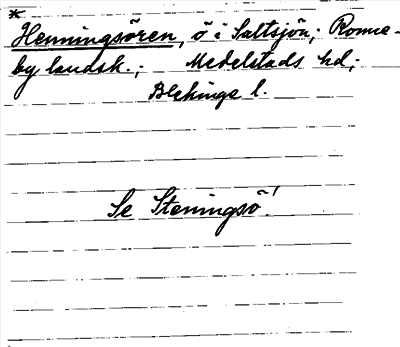 *
Henningsören, ö i Saltsjön; Ronne-
by landsk.; Medelstads hd;
Blekinge l.
Se Steningsö!